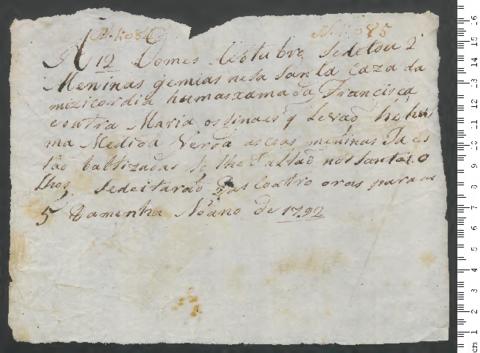 A 12 Domes Autubro Sedetou 2
Meninas gemias nesa Santa Caza da
mizicordia humaxamada Francisca
eoutra Maria osinaes q Levao he hu
ma Medida Verda as coas meninas Ja es
tao baltizadas So lhe faltao nos Santos O
lhos Sedeitarao das Coatro oras para as
5 Damenha No ano de 1792